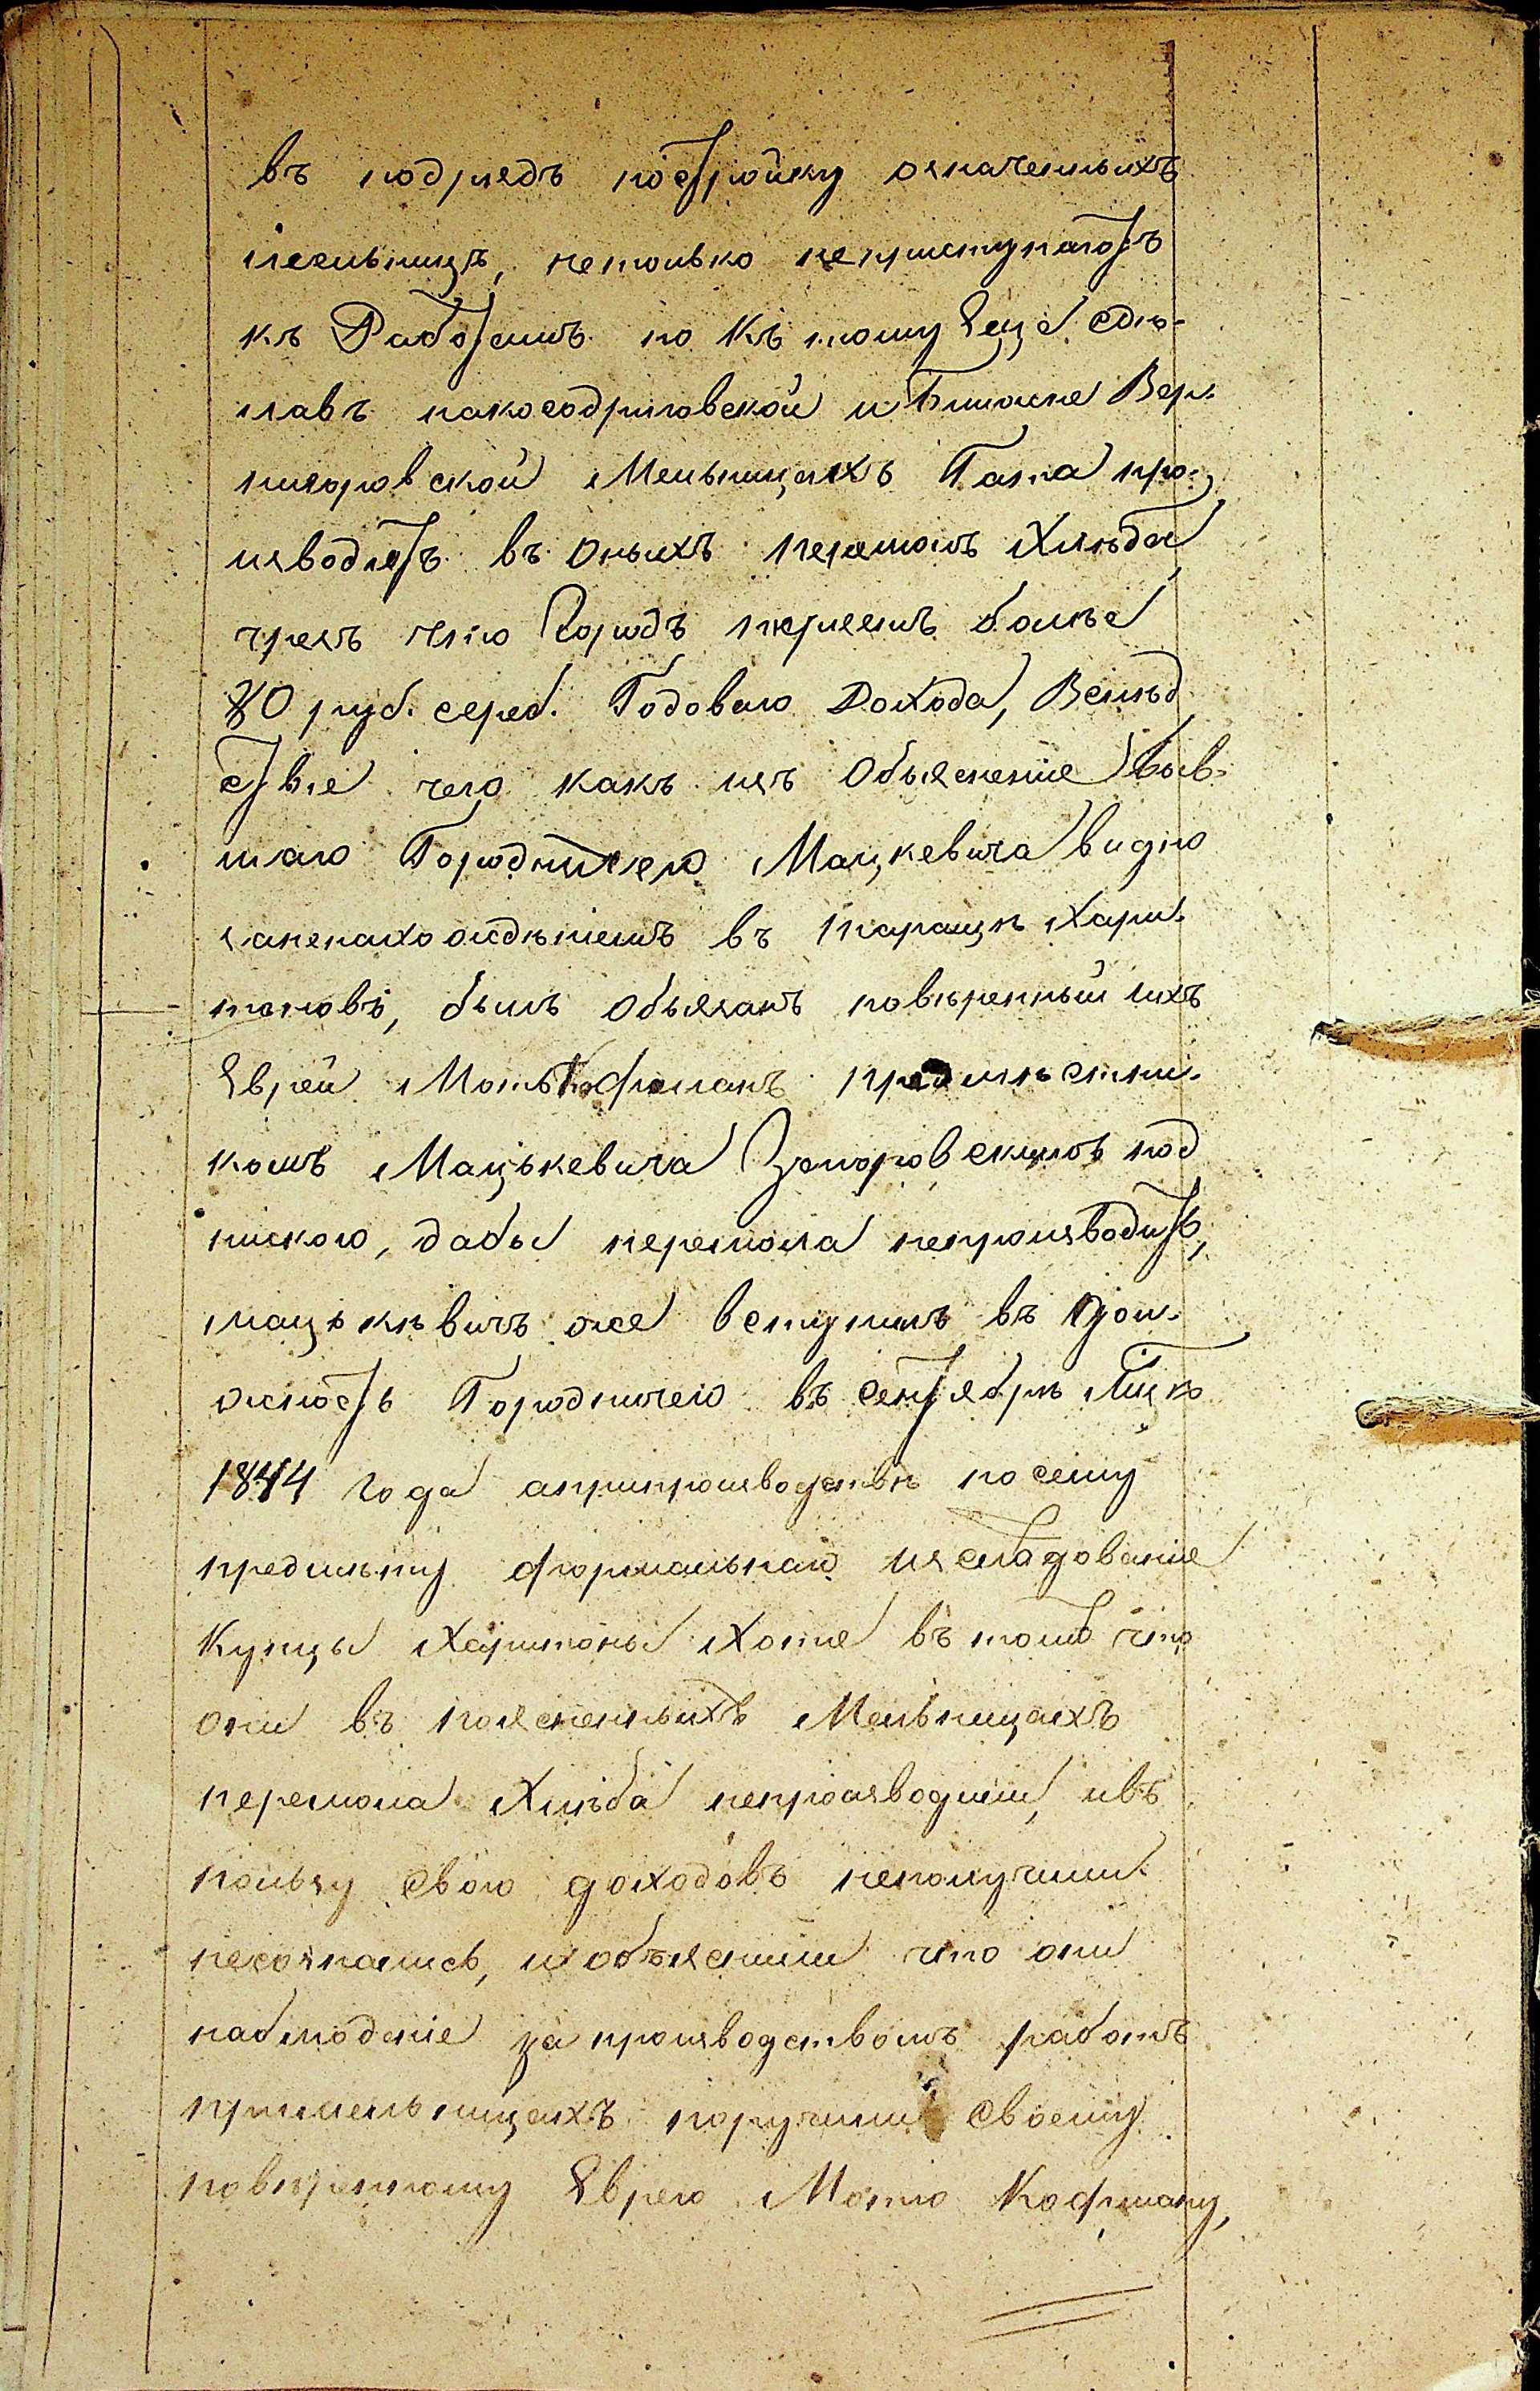 въ подрядъ постройку означенныхъ
мельницъ, нетолько неприступаютъ
къ Работамъ но Къ тому Еще сдѣ-
лавъ накосодриговской и Ближне Вер-
нигоровской Мельницахъ Гати про-
изводятъ въ Оныхъ перемолъ Хлѣба,
чрезъ что Городъ теряетъ болѣе
80 руб. сереб. Годоваго Дохода, Вслѣд
ствіе чего какъ изъ Объясненіе быв-
шаго Городничего Мацкевича видно
заненахожденіемъ въ Таращѣ Хари-
тоновъ, былъ Обязанъ повѣренный ихъ
Еврей Мотъ Кофманъ предмѣстни-
комъ Мацькевича Згоровскимъ под
пискою, дабы перемола непроизводить,
мацькѣвичъ же вступилъ въ дол-
жность Городничего въ Сентябрѣ М-цѣ
1844 года априпроизводствѣ по сему
предмѣту формальнаго изслѣдованіе
Купцы Харитоны Хотя въ томъ что
они въ поясненныхъ Мельницахъ
перемола Хлѣба непроизводили, ивъ
пользу Свою доходовъ неполучили
несознались, и объяснили что они
наблюденіе за производствомъ работъ
примельницахъ поручили Своему
повѣренному Еврею Мотю Кофману,